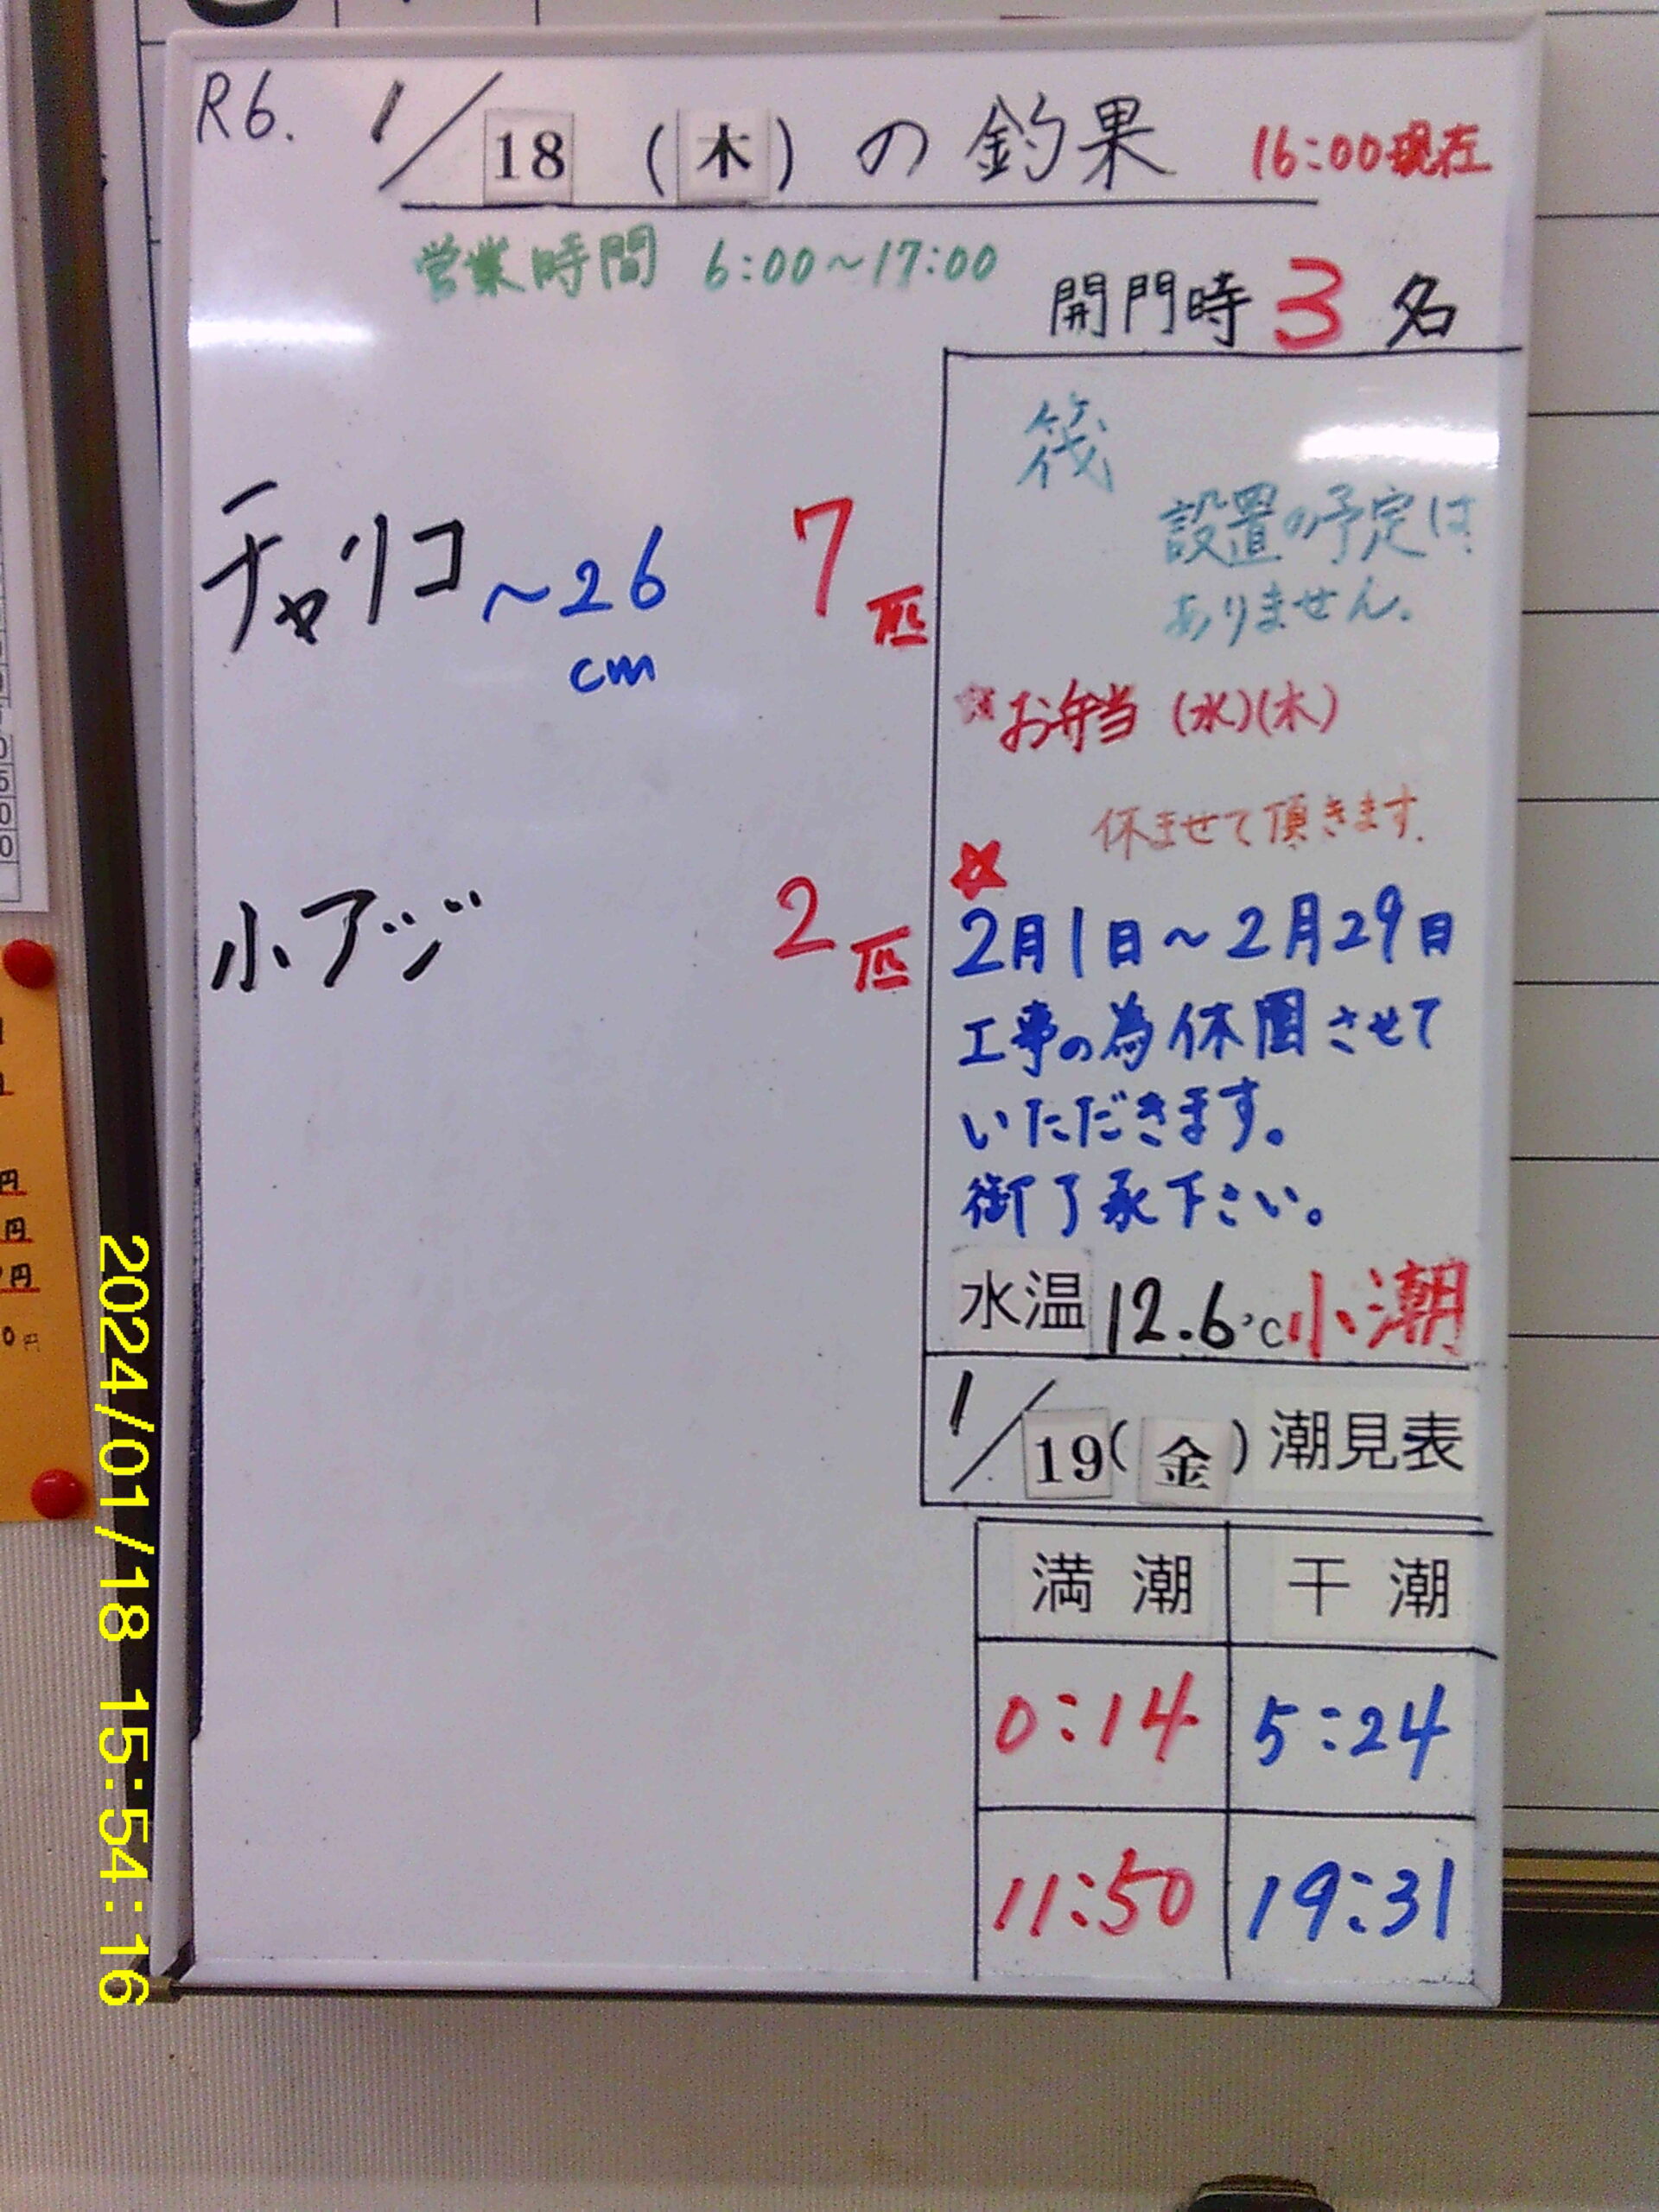 R6. 1/18 (木) の釣果 16:00現在
営業時間 6:00～17:00
開門時 3 名
チャリコ ～26cm 7匹
小アジ 2匹
筏
設置の予定は
ありません.
☆お弁当 (水)(木)
休ませて頂きます.
☆
2月1日～2月29日
工事の為休園させて
いただきます。
御了承下さい。
水温 12.6℃ 小潮
1/19(金) 潮見表
満潮 干潮
0:14 5:24
11:50 19:31
円
円
円
0円
2024/01/18 15:54:16